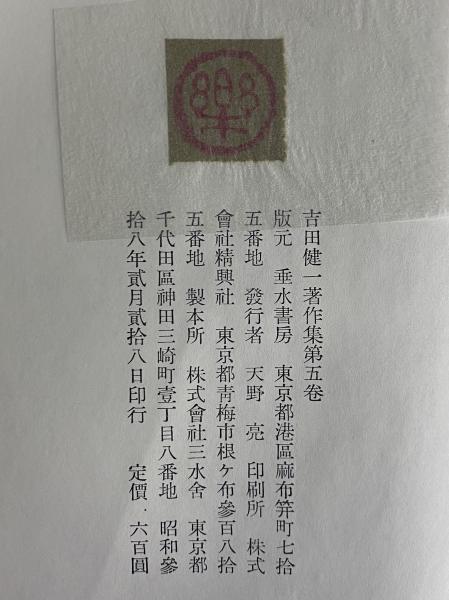 樂
吉田健一著作集第五卷
版元　垂水書房　東京都港區麻布笄町七拾
五番地　發行者　天野　亮　印刷所　株式
會社精興社　東京都靑梅市根ヶ布參百八拾
五番地　製本所　株式會社三水舍　東京都
千代田區神田三崎町壹丁目八番地　昭和參
拾八年貳月貳拾八日印行　　定價・六百圓